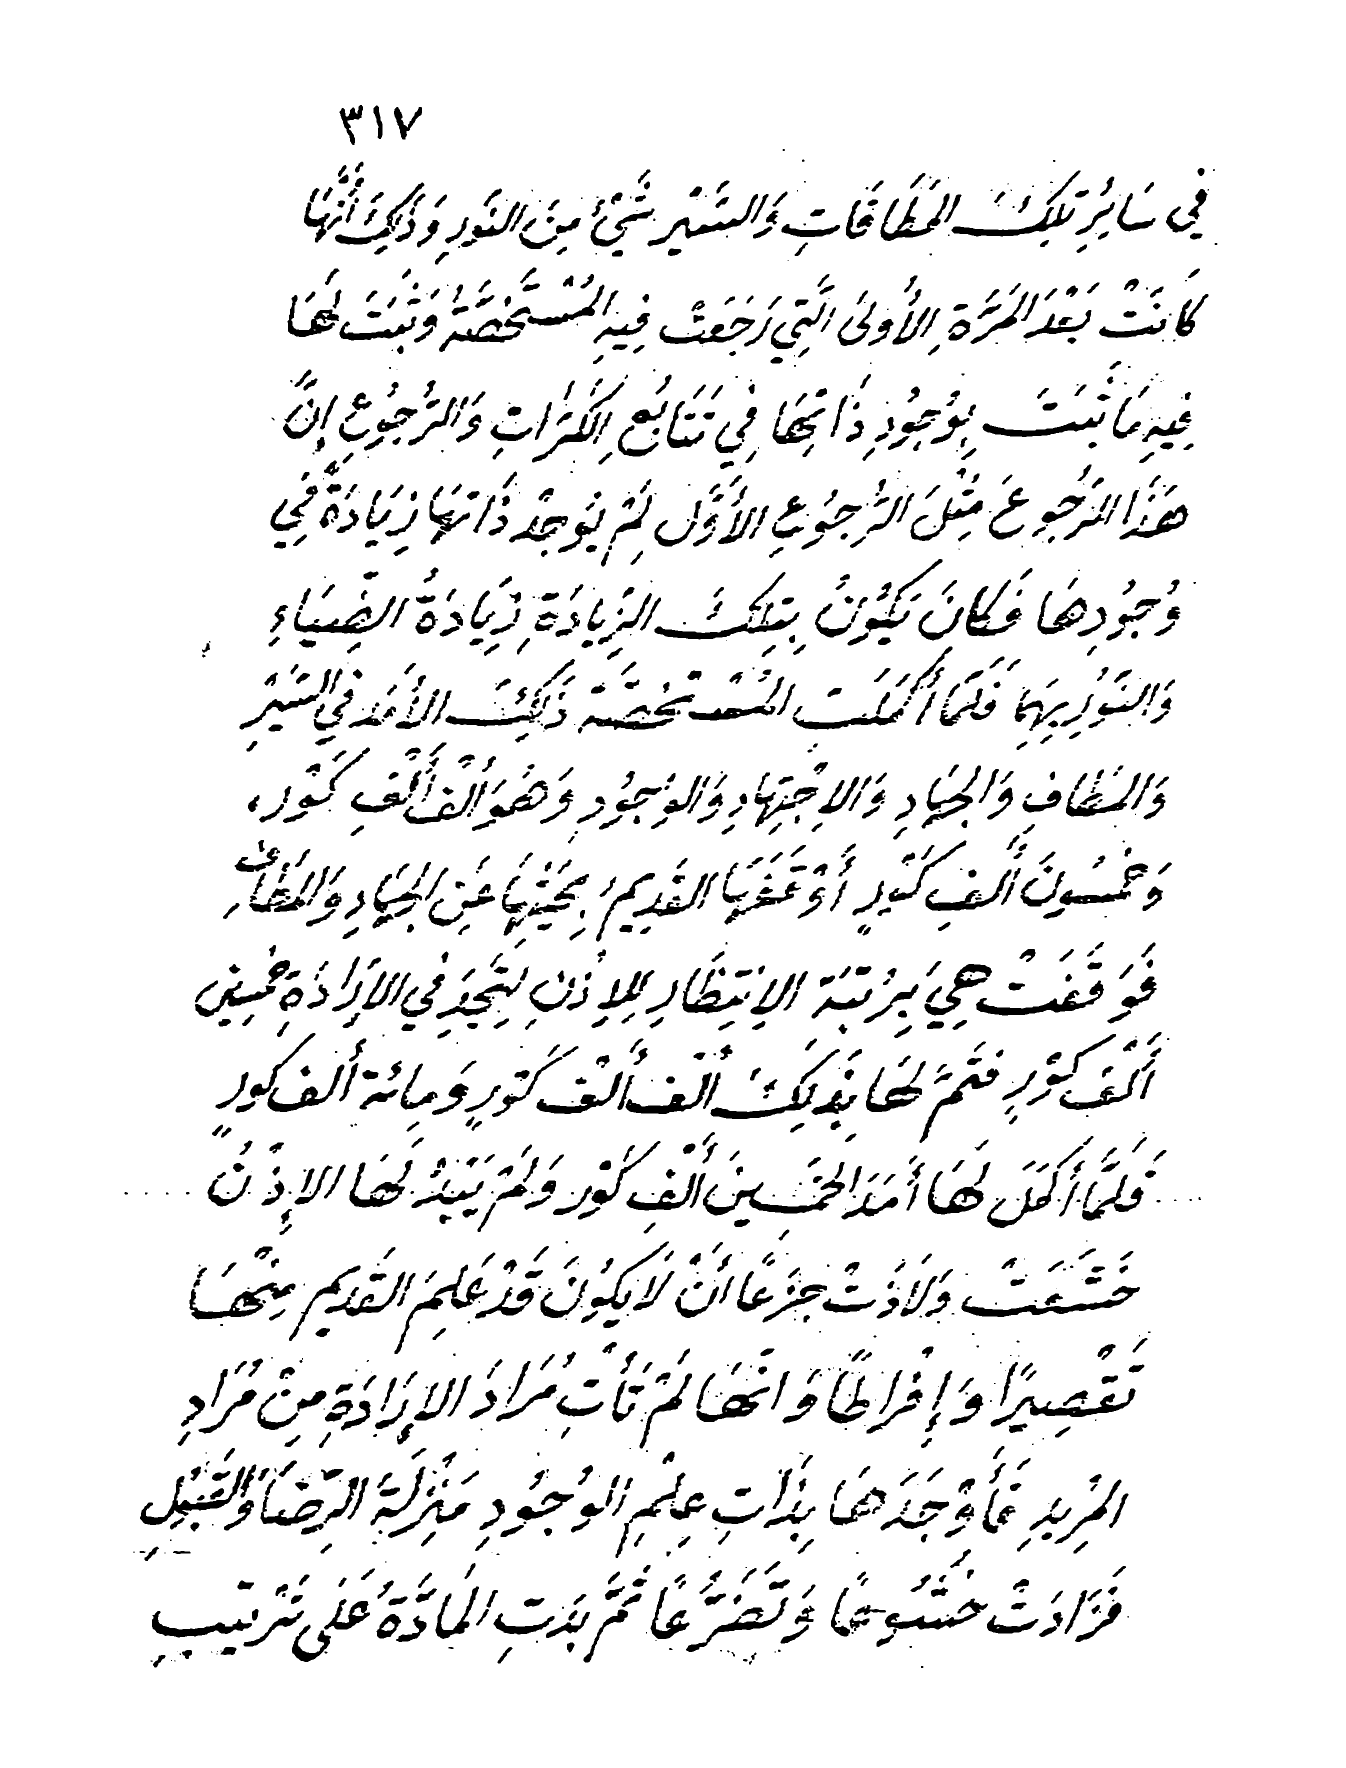 ٣١٧
فِي سَايِرِ تِلْكَ المَطَافَاتِ وَالسَّيْرِ شَيْئٌ مِنَ النُّورِ وَذَلِكَ أَنَّهَا
كَانَتْ بَعْدَ المَرَّةِ الأُولَى الَّتِي رَجَعَتْ فِيهِ المُسْتَخَصَّةُ وَثَبَتَ لَهَا
فِيهِ مَا ثَبَتَ بِوُجُودِ ذَاتِهَا فِي تَتَابُعِ الكَرَّاتِ وَالرُّجُوعِ إِنَّ
هَذَا المَرْجُوعَ مِثْلَ الرُّجُوعِ الأَوَّلِ لَمْ يُوجِدْ ذَاتَهَا زِيَادَةً فِي
وُجُودِهَا فَكَانَ يَكُونُ بِتِلْكَ الزِّيَادَةِ زِيَادَةُ الضِّيَاءِ
وَالنُّورِ بِهِمَا فَلَمَّا أَكْمَلَتِ المُسْتَخَصَّةُ ذَلِكَ الأَمَدَ فِي السَّيْرِ
وَالمَطَافِ وَالجِهَادِ وَالاِجْتِهَادِ وَالوُجُودِ وَهُوَ أَلْفُ أَلْفِ كَوْرٍ،
وَخَمْسُونَ أَلْفِ كَوْرٍ أَوْقَفَهَا القَدِيمُ بِحَيْثِهَا عَنِ الجِهَادِ وَالمَطَافِ
فَوَقَفَتْ هِيَ بِرُتْبَةِ الاِنْتِظَارِ لِلإِذْنِ لِتَجِدَ فِي الإِرَادَةِ خَمْسِينَ
أَلْفَ كَوْرٍ فَتَمَّ لَهَا بِذَلِكَ أَلْفُ أَلْفِ كَوْرٍ وَمِائَة أَلف كَورٍ
فَلَمَّا أَكْمَلَ لَهَا أَمَدَ الخَمْسِينَ أَلْفِ كَوْرٍ وَلَمْ يَبْدُ لَهَا الإِذْنُ
خَشَعَتْ وَلَاذَتْ جَزَعًا أَنْ لَا يَكُونَ قَدْ عَلِمَ القَدِيمُ مِنْهَا
تَقْصِيرًا وَإِفْرَاطًا وَانَّهَا لَمْ تَأْتِ مُرَادَ الإِرَادَةِ مِنْ مُرَادِ
المُرِيدِ فَأَوْجَدَهَا بِذَاتِ عِلْمِ الوُجُودِ مَنْزِلَةَ الرِّضَا وَالقَبُولِ
فَزَادَتْ خُشُوعًا وَتَضَرُّعًا ثُمَّ بَدَتِ المَادَّةُ عَلَى تَرْتِيبِ